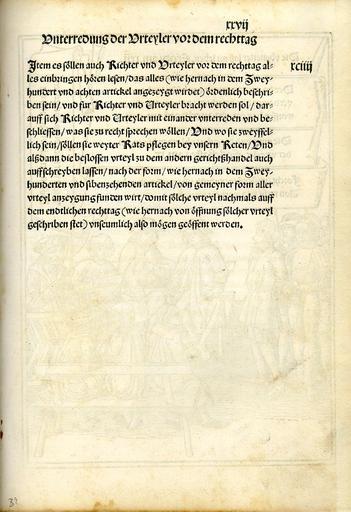 xxvij
Vnterredung der Vrteyler vor dem rechttag
Item es söllen auch Richter vnd Vrteyler vor dem rechttag al- xciiij
les einbringen hören lesen/das alles (wie hernach in dem Zwey-
hundert vnd achten artickel angezeygt wirdet) ördenlich beschri-
ben sein/vnd für Richter vnd Vrteyler bracht werden sol/dar-
auff sich Richter vnd Vrteyler mit einander vnterreden vnd be-
schliessen/was sie zu recht sprechen wöllen/Vnd wo sie zweyffel-
lich sein/söllen sie weyter Rats pflegen bey vnsern Reten/Vnd
alßdann die beslossen vrteyl zu dem andern gerichtßhandel auch
auffschreyben lassen/nach der form/wie hernach in dem Zwey-
hunderten vnd sibenzehenden artickel/von gemeyner form aller
vrteyl anzeygung funden wirt/domit sölche vrteyl nachmals auff
dem endtlichen rechttag (wie hernach von öffnung sölcher vrteyl
geschriben stet) vnseumlich also mögen geöffent werden.